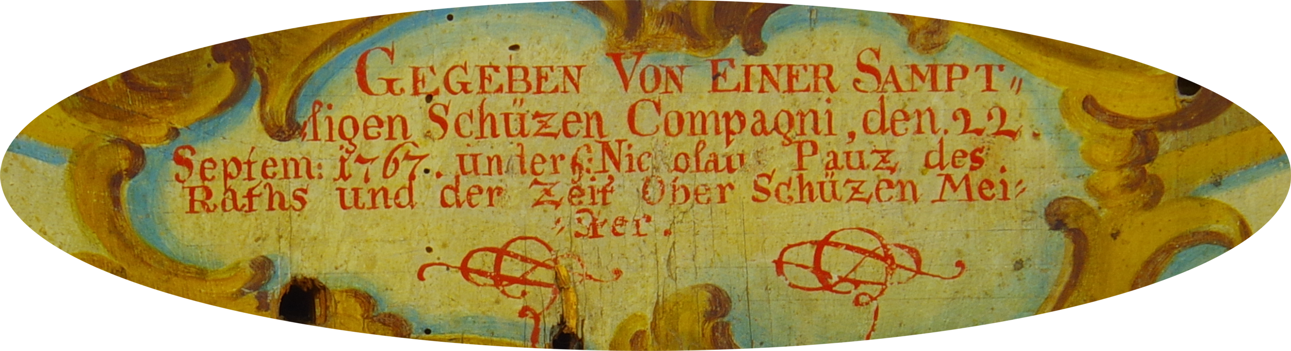 GEGEBEN VON EINER SAMPT„
ſigen Schüzen Compagni, den. 22.
Septem: 1767. under H: Nickolaus Pauz des
Raths und der Zeit Ober Schüzen Mei⸗
⸗ſter.